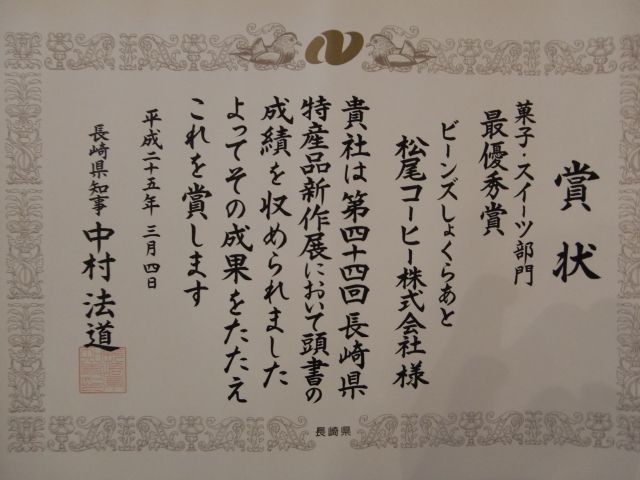 賞状
菓子・スイーツ部門
最優秀賞
ビーンズしょくらあと
松尾コーヒー株式会社様
貴社は第四十四回長崎県
特産品新作展において頭書の
成績を収められました
よってその成果をたたえ
これを賞します
平成二十五年三月四日
長崎県知事 中村法道
長崎県